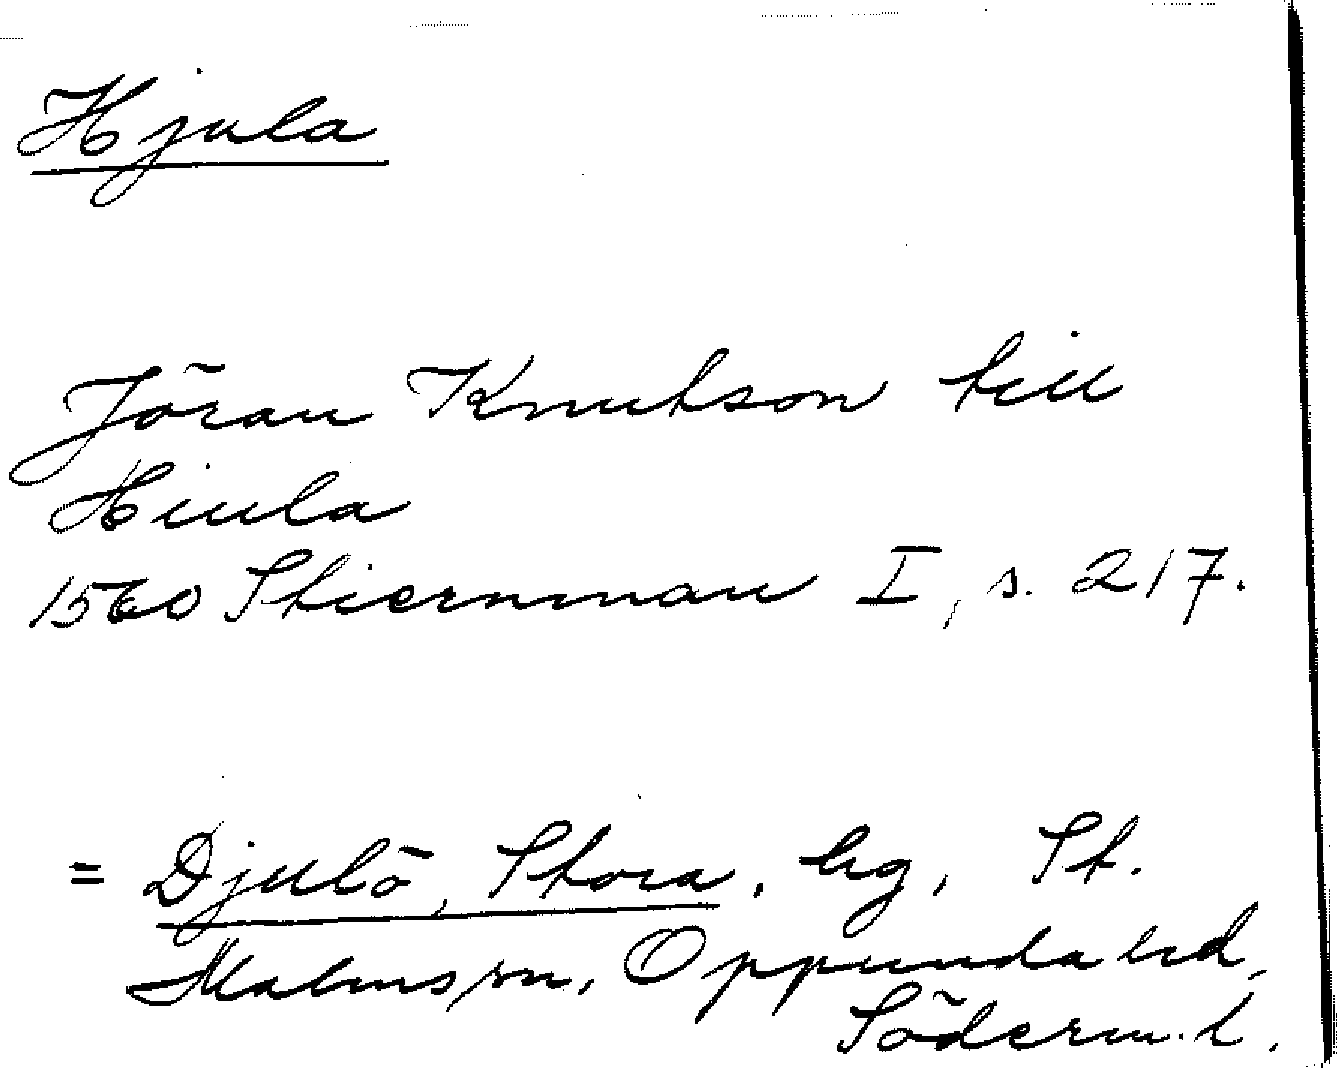 Hjula
Jöran Knutson till
Hiula
1560 Stiernman I, s. 217.
= Djulö, Stora, hg, St.
Malms sn, Oppunda hd,
Söderm. l.